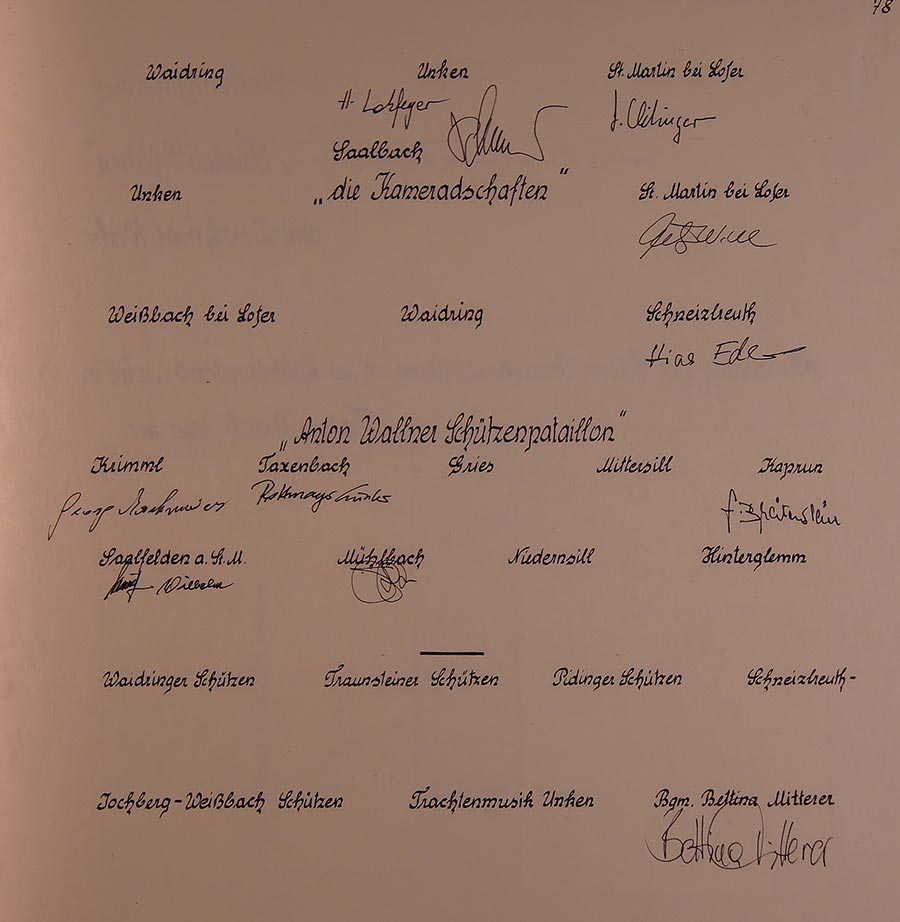 78
Waidring Unken St. Martin bei Lofer
Saalbach
„die Kameradschaften"
Unken St. Martin bei Lofer
Weißbach bei Lofer Waidring Schneizlreuth
Hias Eder
„Anton Wallner Schützenpataillon"
Krimml Taxenbach Gries Mittersill Kaprun
Saalfelden a. St. M. Mühlbach Niedernsill Hinterglemm
Wilhelm
Waidringer Schützen Traunsteiner Schützen Pidinger Schützen Schneizlreuth-
Jochberg-Weißbach Schützen Trachtenmusik Unken Bgm. Bettina Mitterer
Bettina Mitterer